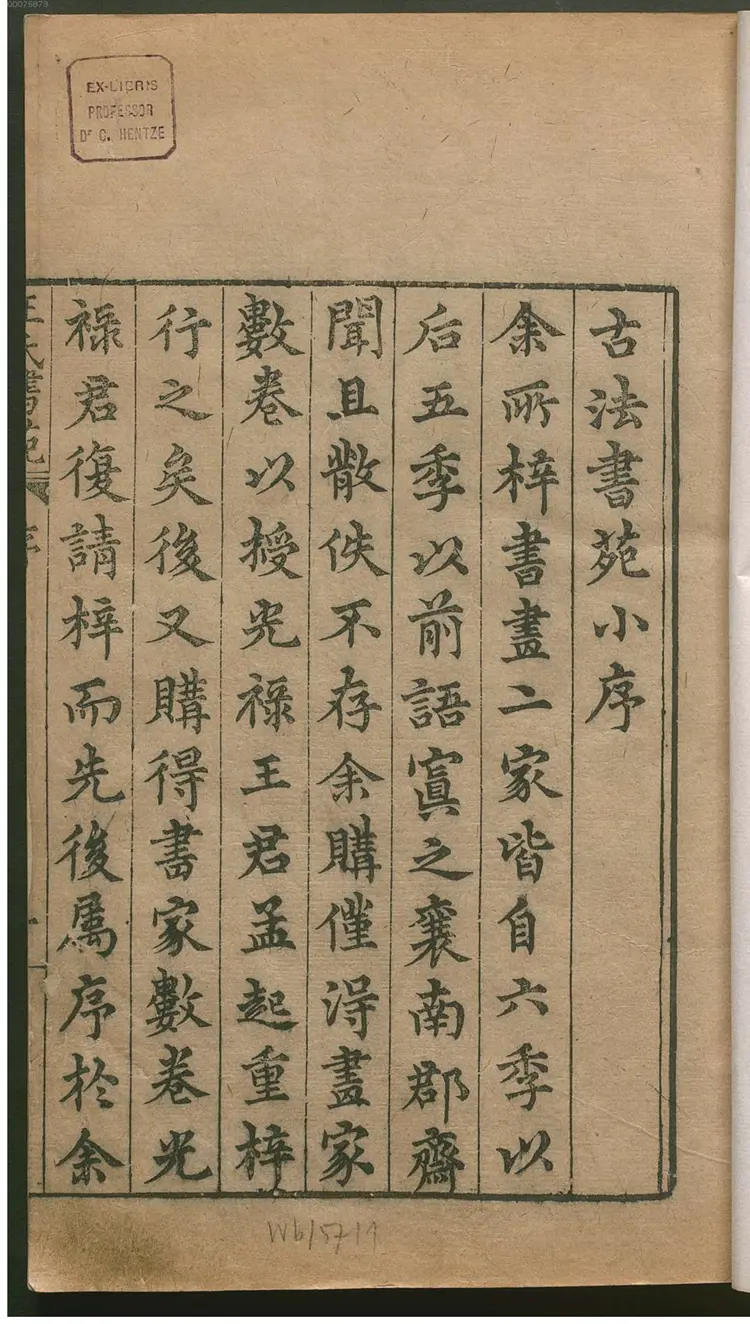 00075873
EX-LIBRIS
PROFESSOR
Dr C. HENTZE
古法書苑小序
余所梓書畫二家皆自六季以
后五季以前語寘之襄南郡齋
聞且散佚不存余購僅淂畫家
數卷以授光祿王君孟起重梓
行之矣後又購得書家數卷光
祿君復請梓而先後屬序於余
王氏書苑
序
一